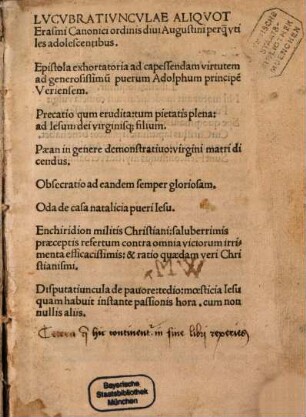 LVCVBRATIVNCVLAE ALIQVOT
Erasmi Canonici ordinis diui Augustini perq̃ vti
les adolescentibus.
Epistola exhortatoria ad capessendam virtutem
ad generosissimũ puerum Adolphum principẽ
Veriensem.
Precatio qum erudita: tum pietatis plena:
ad Iesum dei virginisq; filium.
Pæan in genere demonstratiuo: virgini matri di
cendus.
Obsecratio ad eandem semper gloriosam.
Oda de casa natalicia pueri Iesu.
Enchiridion militis Christiani: saluberrimis
præceptis refertum contra omnia viciorum irri
menta efficacissimis: & ratio quædam veri Chri
stianismi.
Disputatiuncula de pauore: tedio: mœsticia Iesu
quam habuit instante passionis hora. cum non
nullis aliis.
in fine libri
Bayerische
Staatsbibliothek
München